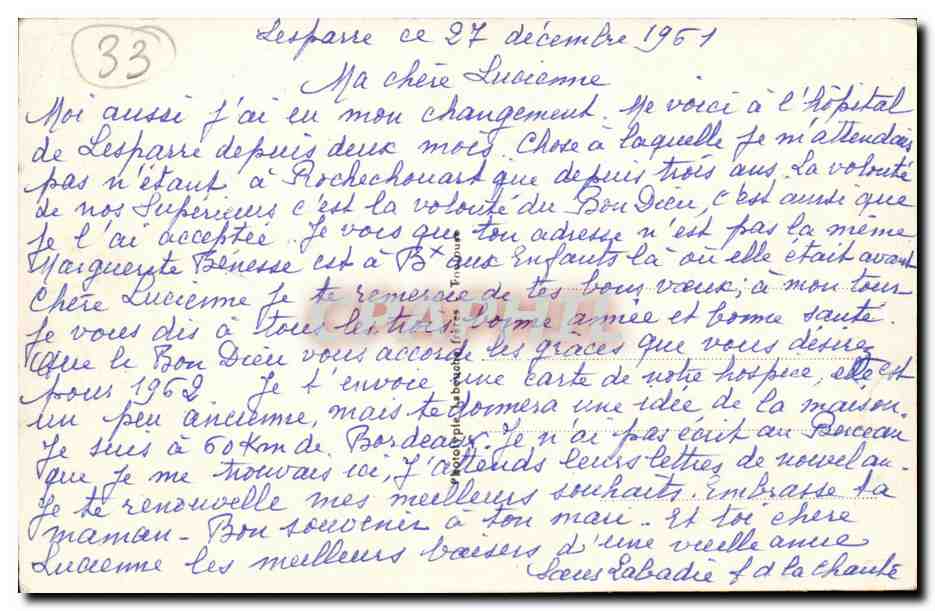 33
Lesparre ce 27 décembre 1961
Ma chère Lucienne
Moi aussi j'ai eu mon changement. Me voici à l'hôpital
de Lesparre depuis deux mois. Chose à laquelle je m'attendais
pas n'étant à Rochechouart que depuis trois ans. La volonté
de nos Supérieurs c'est la volonté du Bon Dieu, c'est ainsi que
je l'ai acceptée. Je vois que ton adresse n'est pas la même
Marguerite Benesse est à Bx aux Enfants là où elle était avant
Chère Lucienne je te remercie de tes bons vœux, à mon tour
je vous dis à tous les trois bonne année et bonne santé.
Que le Bon Dieu vous accorde les grâces que vous désirez
pour 1962 Je t'envoie une carte de notre hospice, elle est
un peu ancienne, mais te donnera une idée de la maison.
Je suis à 60 Km de Bordeaux. Je n'ai pas écrit au Berceau
que je me trouvais ici, j'attends leurs lettres de nouvel an.
Je te renouvelle mes meilleurs souhaits. Embrasse ta
maman - Bon souvenir à ton mari - Et toi chère
Lucienne les meilleurs baisers d'une vieille amie
Sœur Labadie f d la charité
Phototypie Labouche frères Toulouse